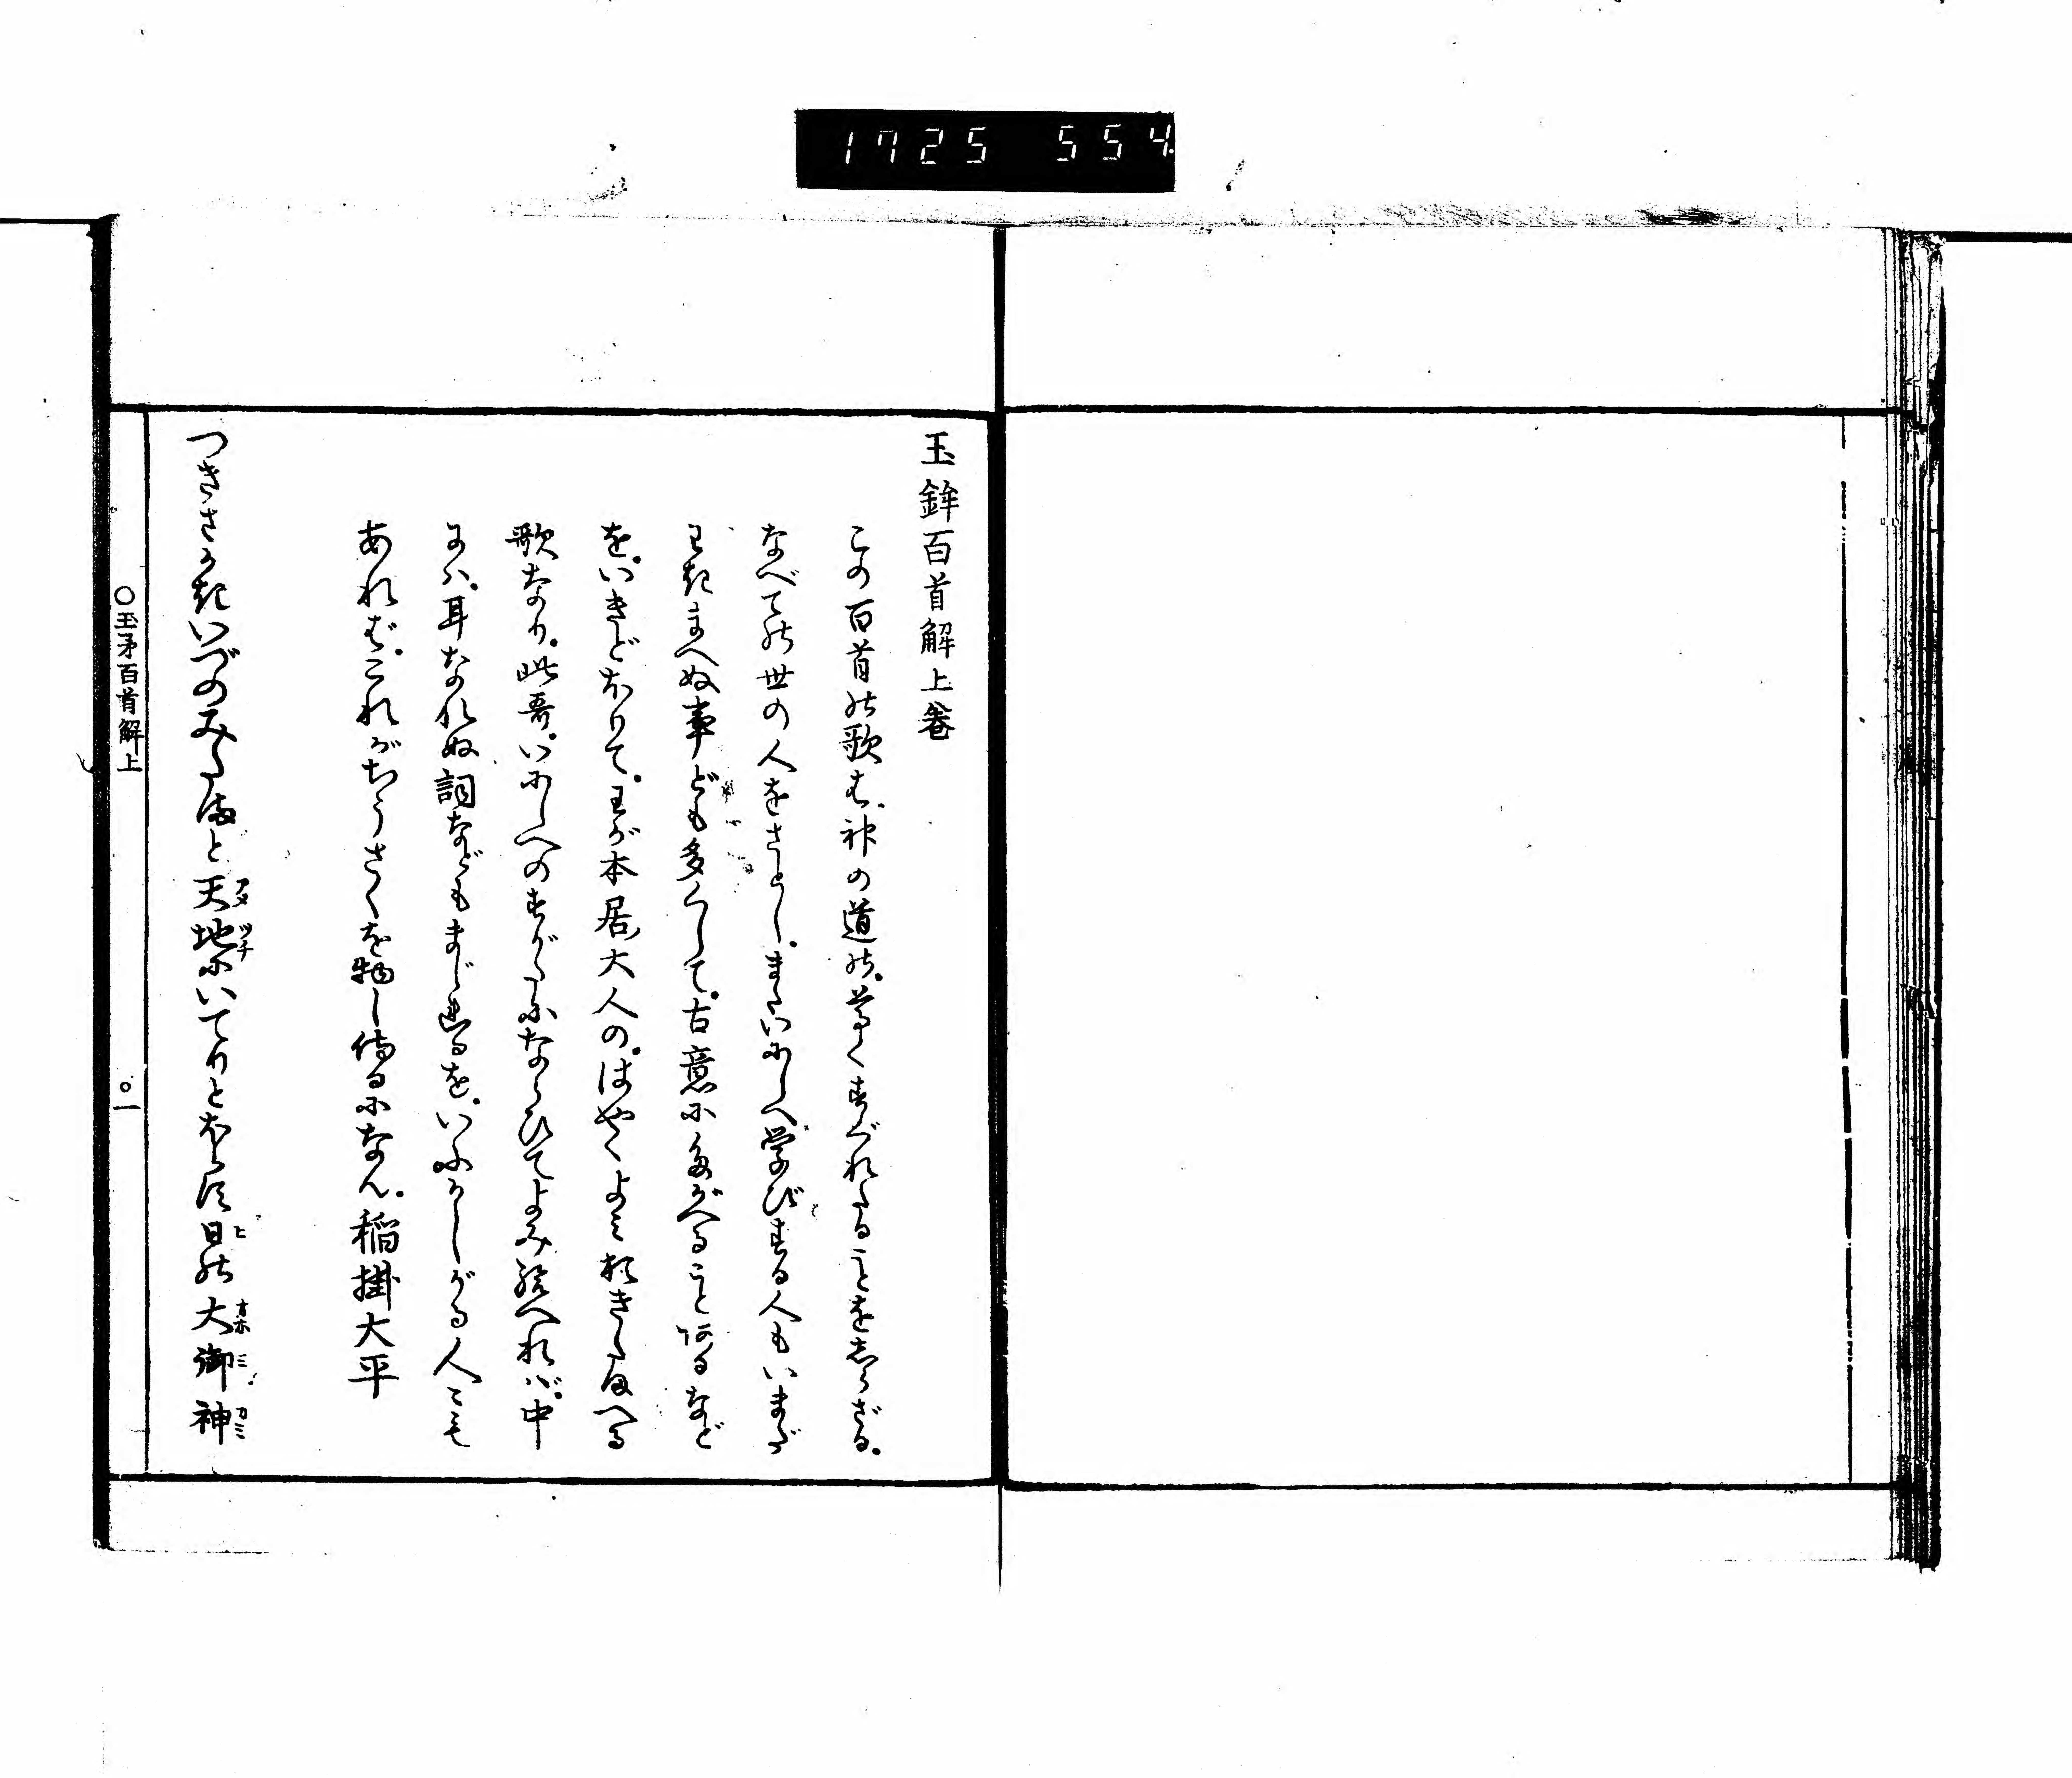 1725 554
玉鉾百首解上巻
この百首の歌は、神の道の。尊くすぐれたることをしらざる。
なべての世の人をさとし。またいにしへ学びする人もいまだ
わきまへぬ事ども多くして。古意にたがへることあるなど
を。いきどほりて。わが本居大人の。はやくよみおきたまへる
歌なり。此哥。いにしへのすがたにならひてよみ給へれば。中
には。耳なれぬ詞などもまじれるを。いふかしがる人こも
あれば。これがちうさくを物し侍るになん。稲掛大平
つきさかきいづのみたまと天地にいてりとほらす日の大御神
アメ ツチ ヒ オホ ミ カミ
〇玉矛百首解上
〇一